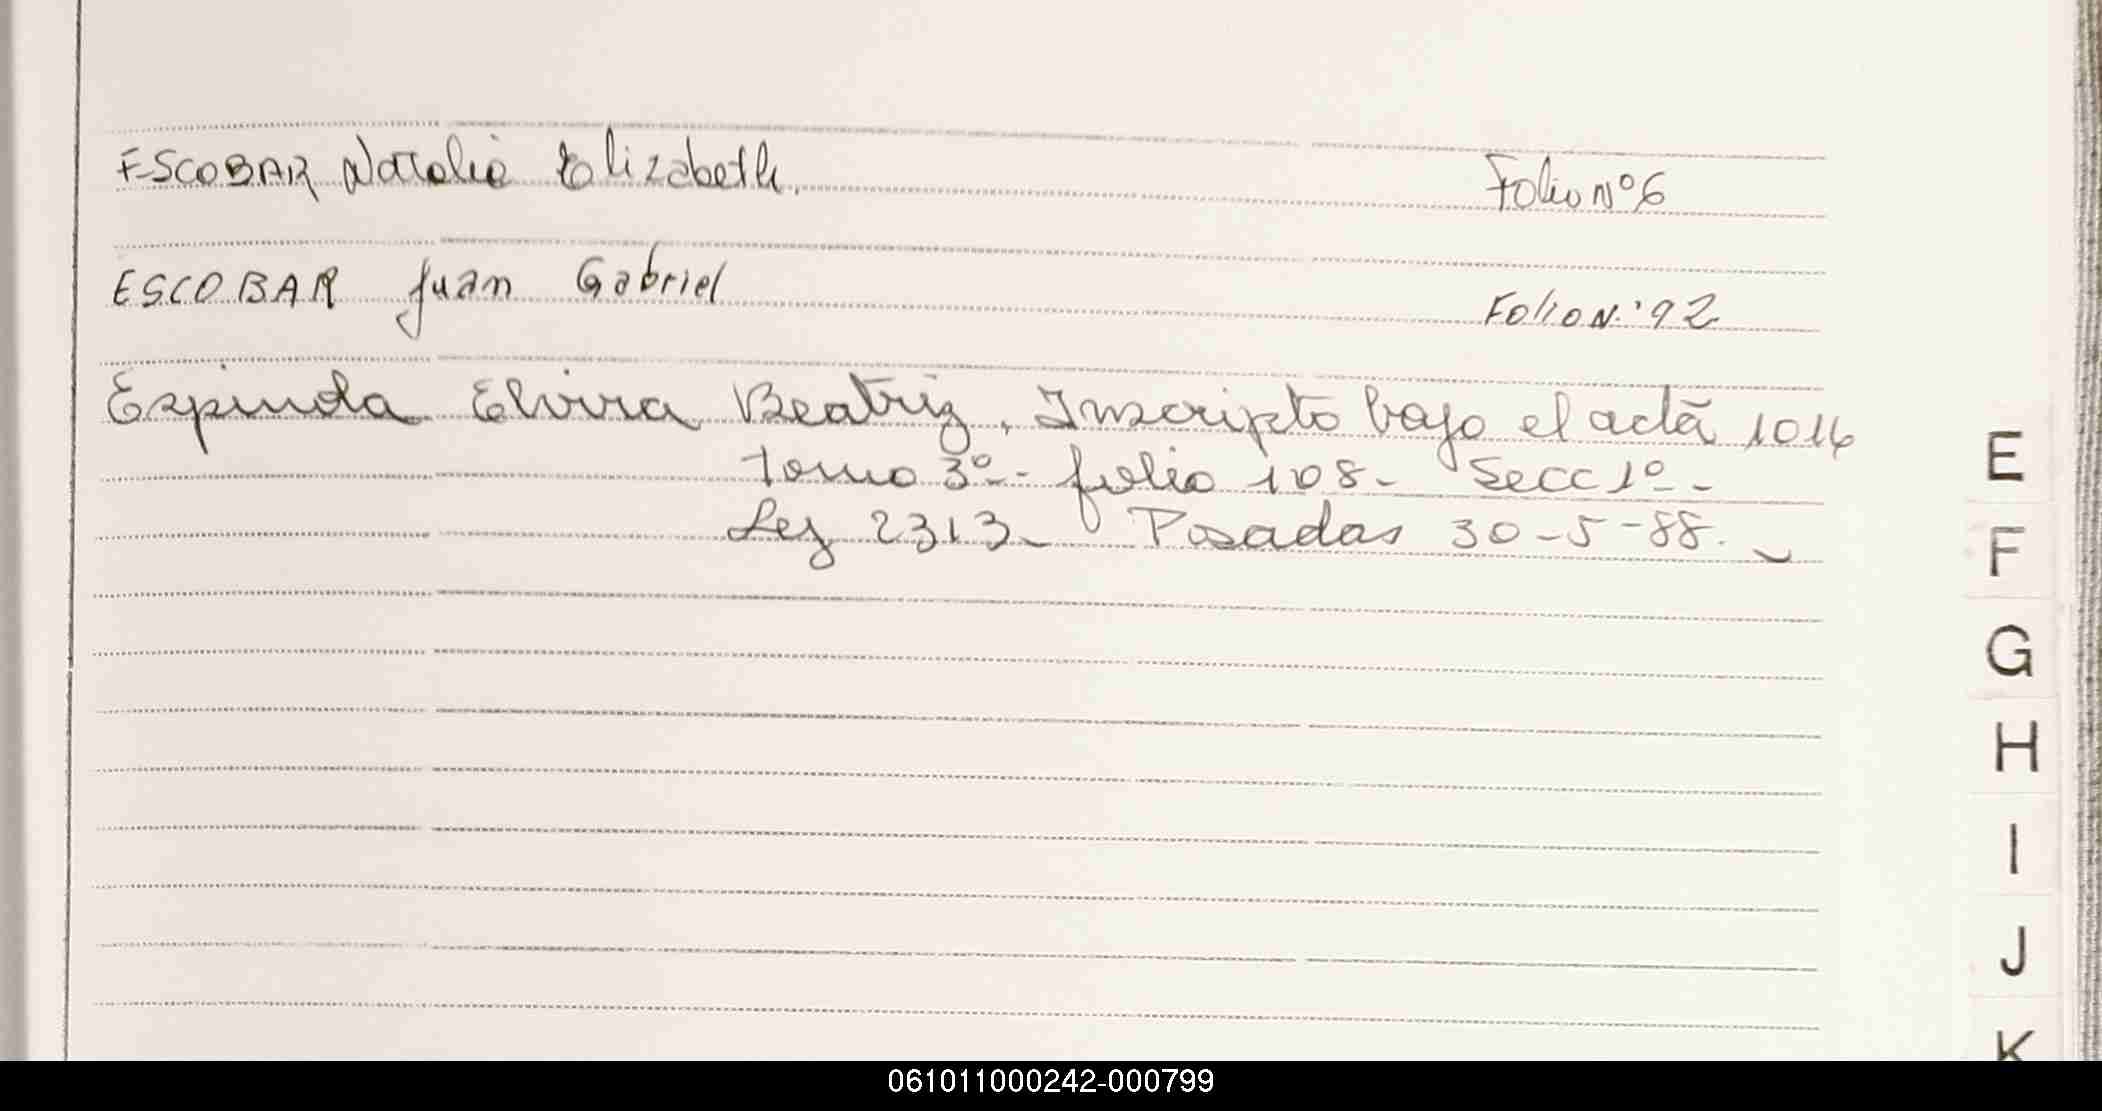 ESCOBAR Natalia Elizabeth. Folio Nº 6
ESCOBAR Juan Gabriel Folio N.º 92
Espindola Elvira Beatriz, Inscripto bajo el acta 1016
tomo 3º - folio 108 - Secc 1º -
Ley 2313 - Posadas 30-5-88. -
E
F
G
H
I
J
K
061011000242-000799